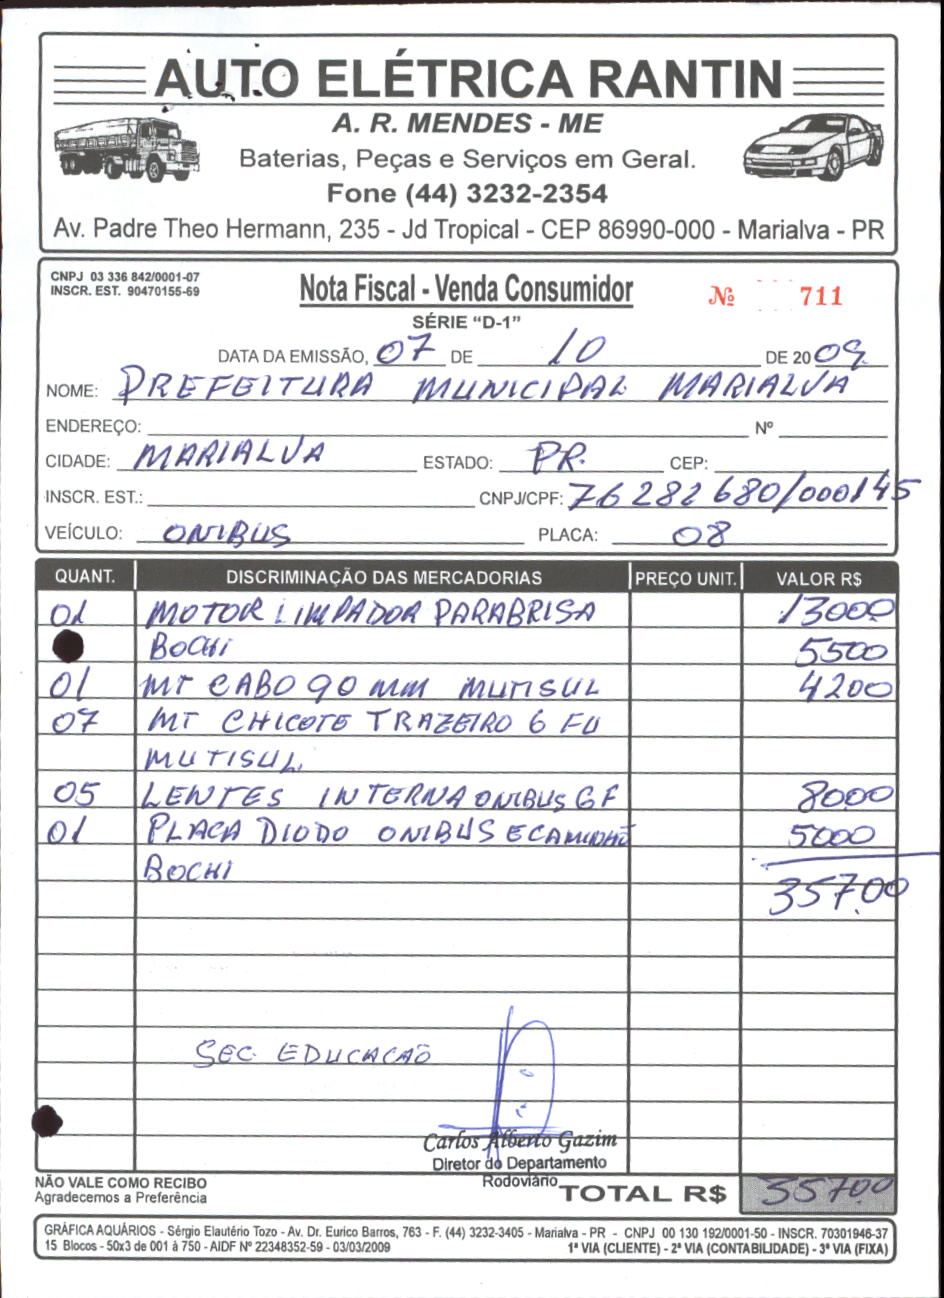 AUTO ELÉTRICA RANTIN
A. R. MENDES - ME
Baterias, Peças e Serviços em Geral.
Fone (44) 3232-2354
Av. Padre Theo Hermann, 235 - Jd Tropical - CEP 86990-000 - Marialva - PR
CNPJ 03 336 842/0001-07
INSCR. EST. 90470155-69
Nota Fiscal - Venda Consumidor
Nº 711
SÉRIE "D-1"
DATA DA EMISSÃO, 07 DE 10 DE 2009
NOME: PREFEITURA MUNICIPAL MARIALVA
ENDEREÇO: Nº
CIDADE: MARIALVA ESTADO: PR. CEP:
INSCR. EST.: CNPJ/CPF: 76 282 680/000145
VEÍCULO: ONIBUS PLACA: 08
QUANT. DISCRIMINAÇÃO DAS MERCADORIAS PREÇO UNIT. VALOR R$
01 MOTOR LIMPADOR PARABRISA 13000
BOCHI 5500
01 MT CABO 90 MM MUTISUL 4200
07 MT CHICOTE TRAZEIRO 6 FU
MUTISUL
05 LENTES INTERNA ONIBUS GF 8000
01 PLACA DIODO ONIBUS E CAMINHÃO 5000
BOCHI
357.00
SEC. EDUCACAÕ
Carlos Alberto Gazim
Diretor do Departamento
Rodoviário
NÃO VALE COMO RECIBO
Agradecemos a Preferência
TOTAL R$ 357.00
GRÁFICA AQUÁRIOS - Sérgio Elautério Tozo - Av. Dr. Eurico Barros, 763 - F. (44) 3232-3405 - Marialva - PR - CNPJ 00 130 192/0001-50 - INSCR. 70301946-37
15 Blocos - 50x3 de 001 à 750 - AIDF Nº 22348352-59 - 03/03/2009 1ª VIA (CLIENTE) - 2ª VIA (CONTABILIDADE) - 3ª VIA (FIXA)